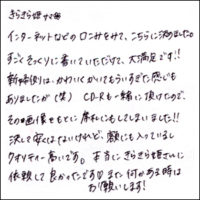 きらきら姫サマ
インターネットなどの口コミをみて、こちらに決めました。
すごくそっくりに書いていただけて、大満足です!!
新婦側は、かわいくかいてもらいすぎた感じも
ありましたが(笑) CD-Rも一緒に頂けたので、
その画像をもとに
しました!!
決して安くはないけれど、額にも入っているし
クオリティー高いです。本当にきらきら姫さんに
依頼して良かったです また何かある時は
お願いします!